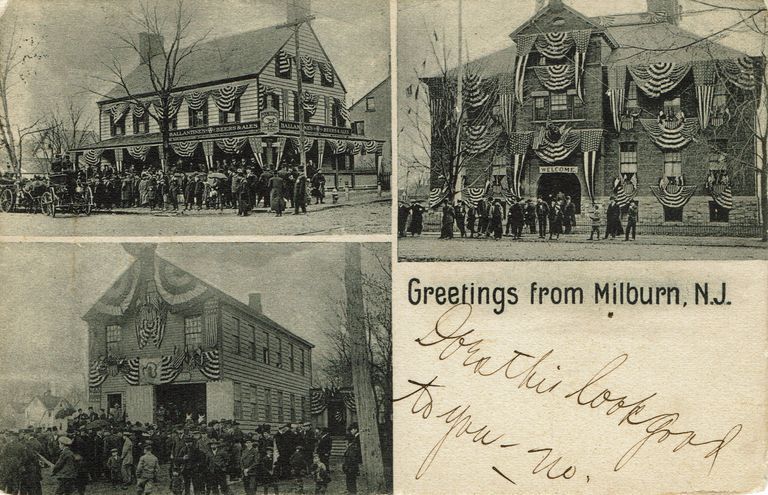 BALLANTINE'S BEERS & ALES
BALLANTINE'S BEERS & ALES
WELCOME
Greetings from Milburn, N.J.
Does this look good
to you - no.